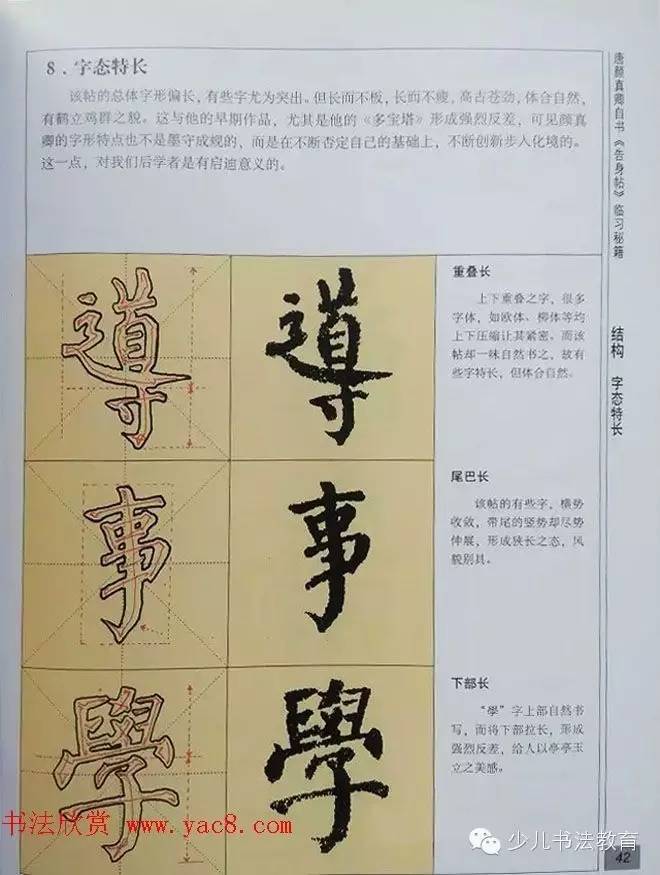 8．字态特长
该帖的总体字形偏长，有些字尤为突出。但长而不板，长而不瘦，高古苍劲，体合自然，
有鹤立鸡群之貌。这与他的早期作品，尤其是他的《多宝塔》形成强烈反差，可见颜真
卿的字形特点也不是墨守成规的，而是在不断否定自己的基础上，不断创新步入化境的。
这一点，对我们后学者是有启迪意义的。
唐颜真卿自书《告身帖》临习秘籍
结构 字态特长
導
導
重叠长
上下重叠之字，很多
字体，如欧体、柳体等均
上下压缩让其紧密。而该
帖却一味自然书之，故有
些字特长，但体合自然。
事
事
尾巴长
该帖的有些字，横势
收敛，带尾的竖势却尽势
伸展，形成狭长之态，风
貌别具。
學
學
下部长
“學”字上部自然书
写，而将下部拉长，形成
强烈反差，给人以亭亭玉
立之美感。
书法欣赏 www.yac8.com
少儿书法教育
42